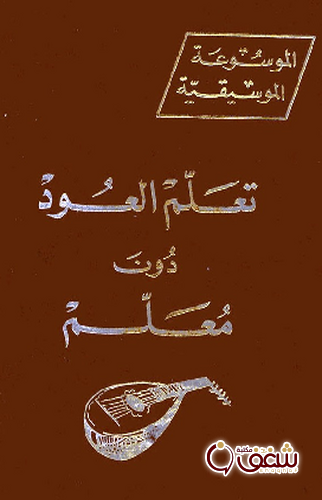 الموسُوعَة
الموسيقيّة
تعَلّمْ العُودْ
دُونَ
مُعَلّمْ
مكتبة
شغف